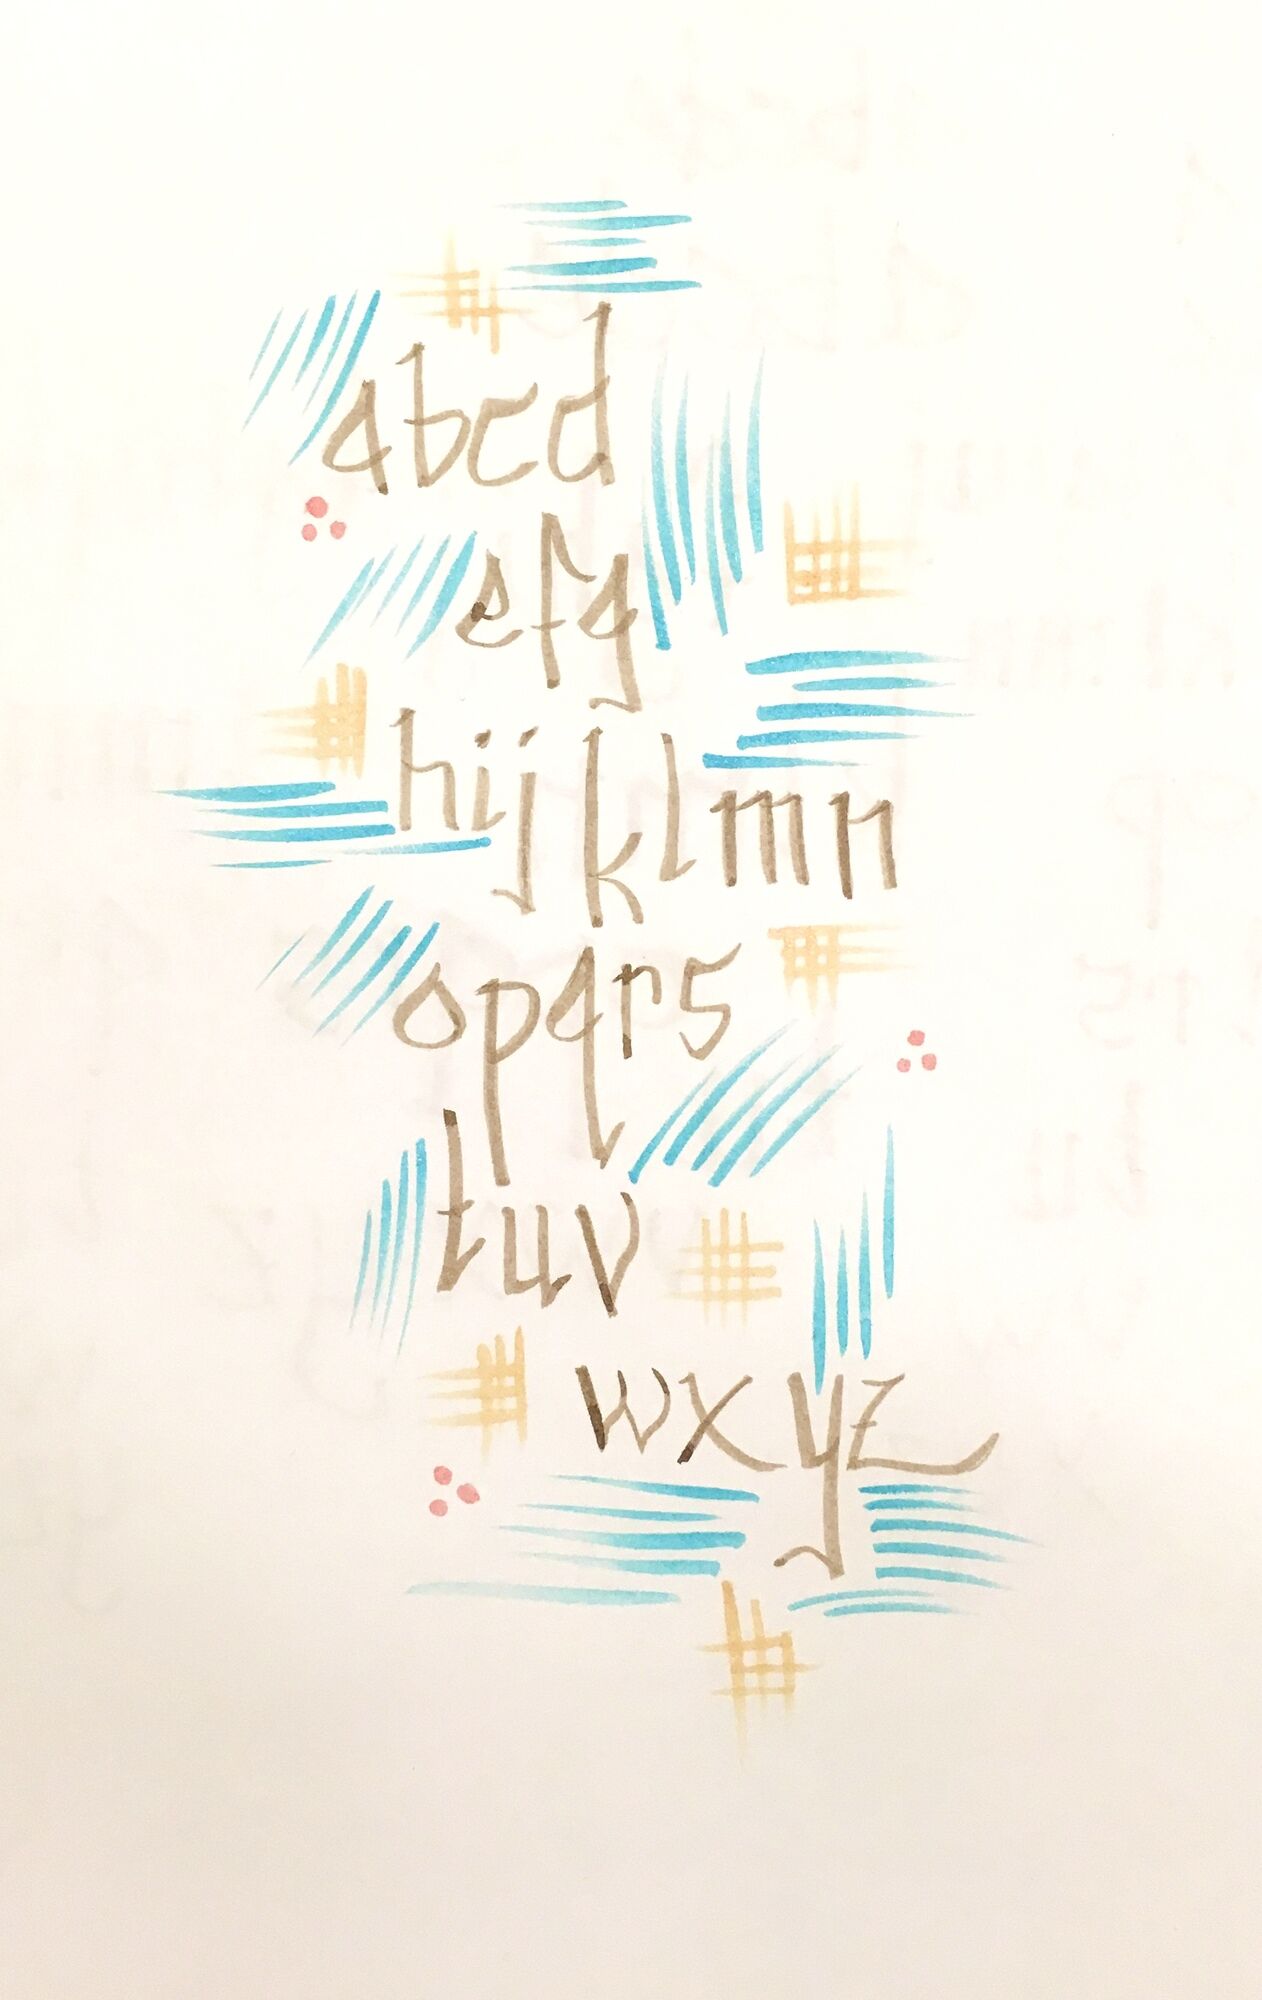 abcd
efg
hijklmn
opqrs
tuv
wxyz